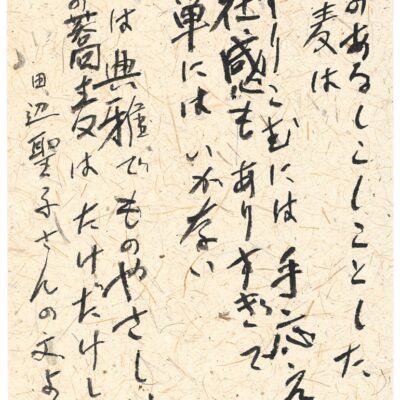 のあるしこしことした
麦は
りこむには 手応え
在感もありすぎて
単には いかない
は典雅でものやさし
の蕎麦は たけだけし
田辺聖子さんの文よ